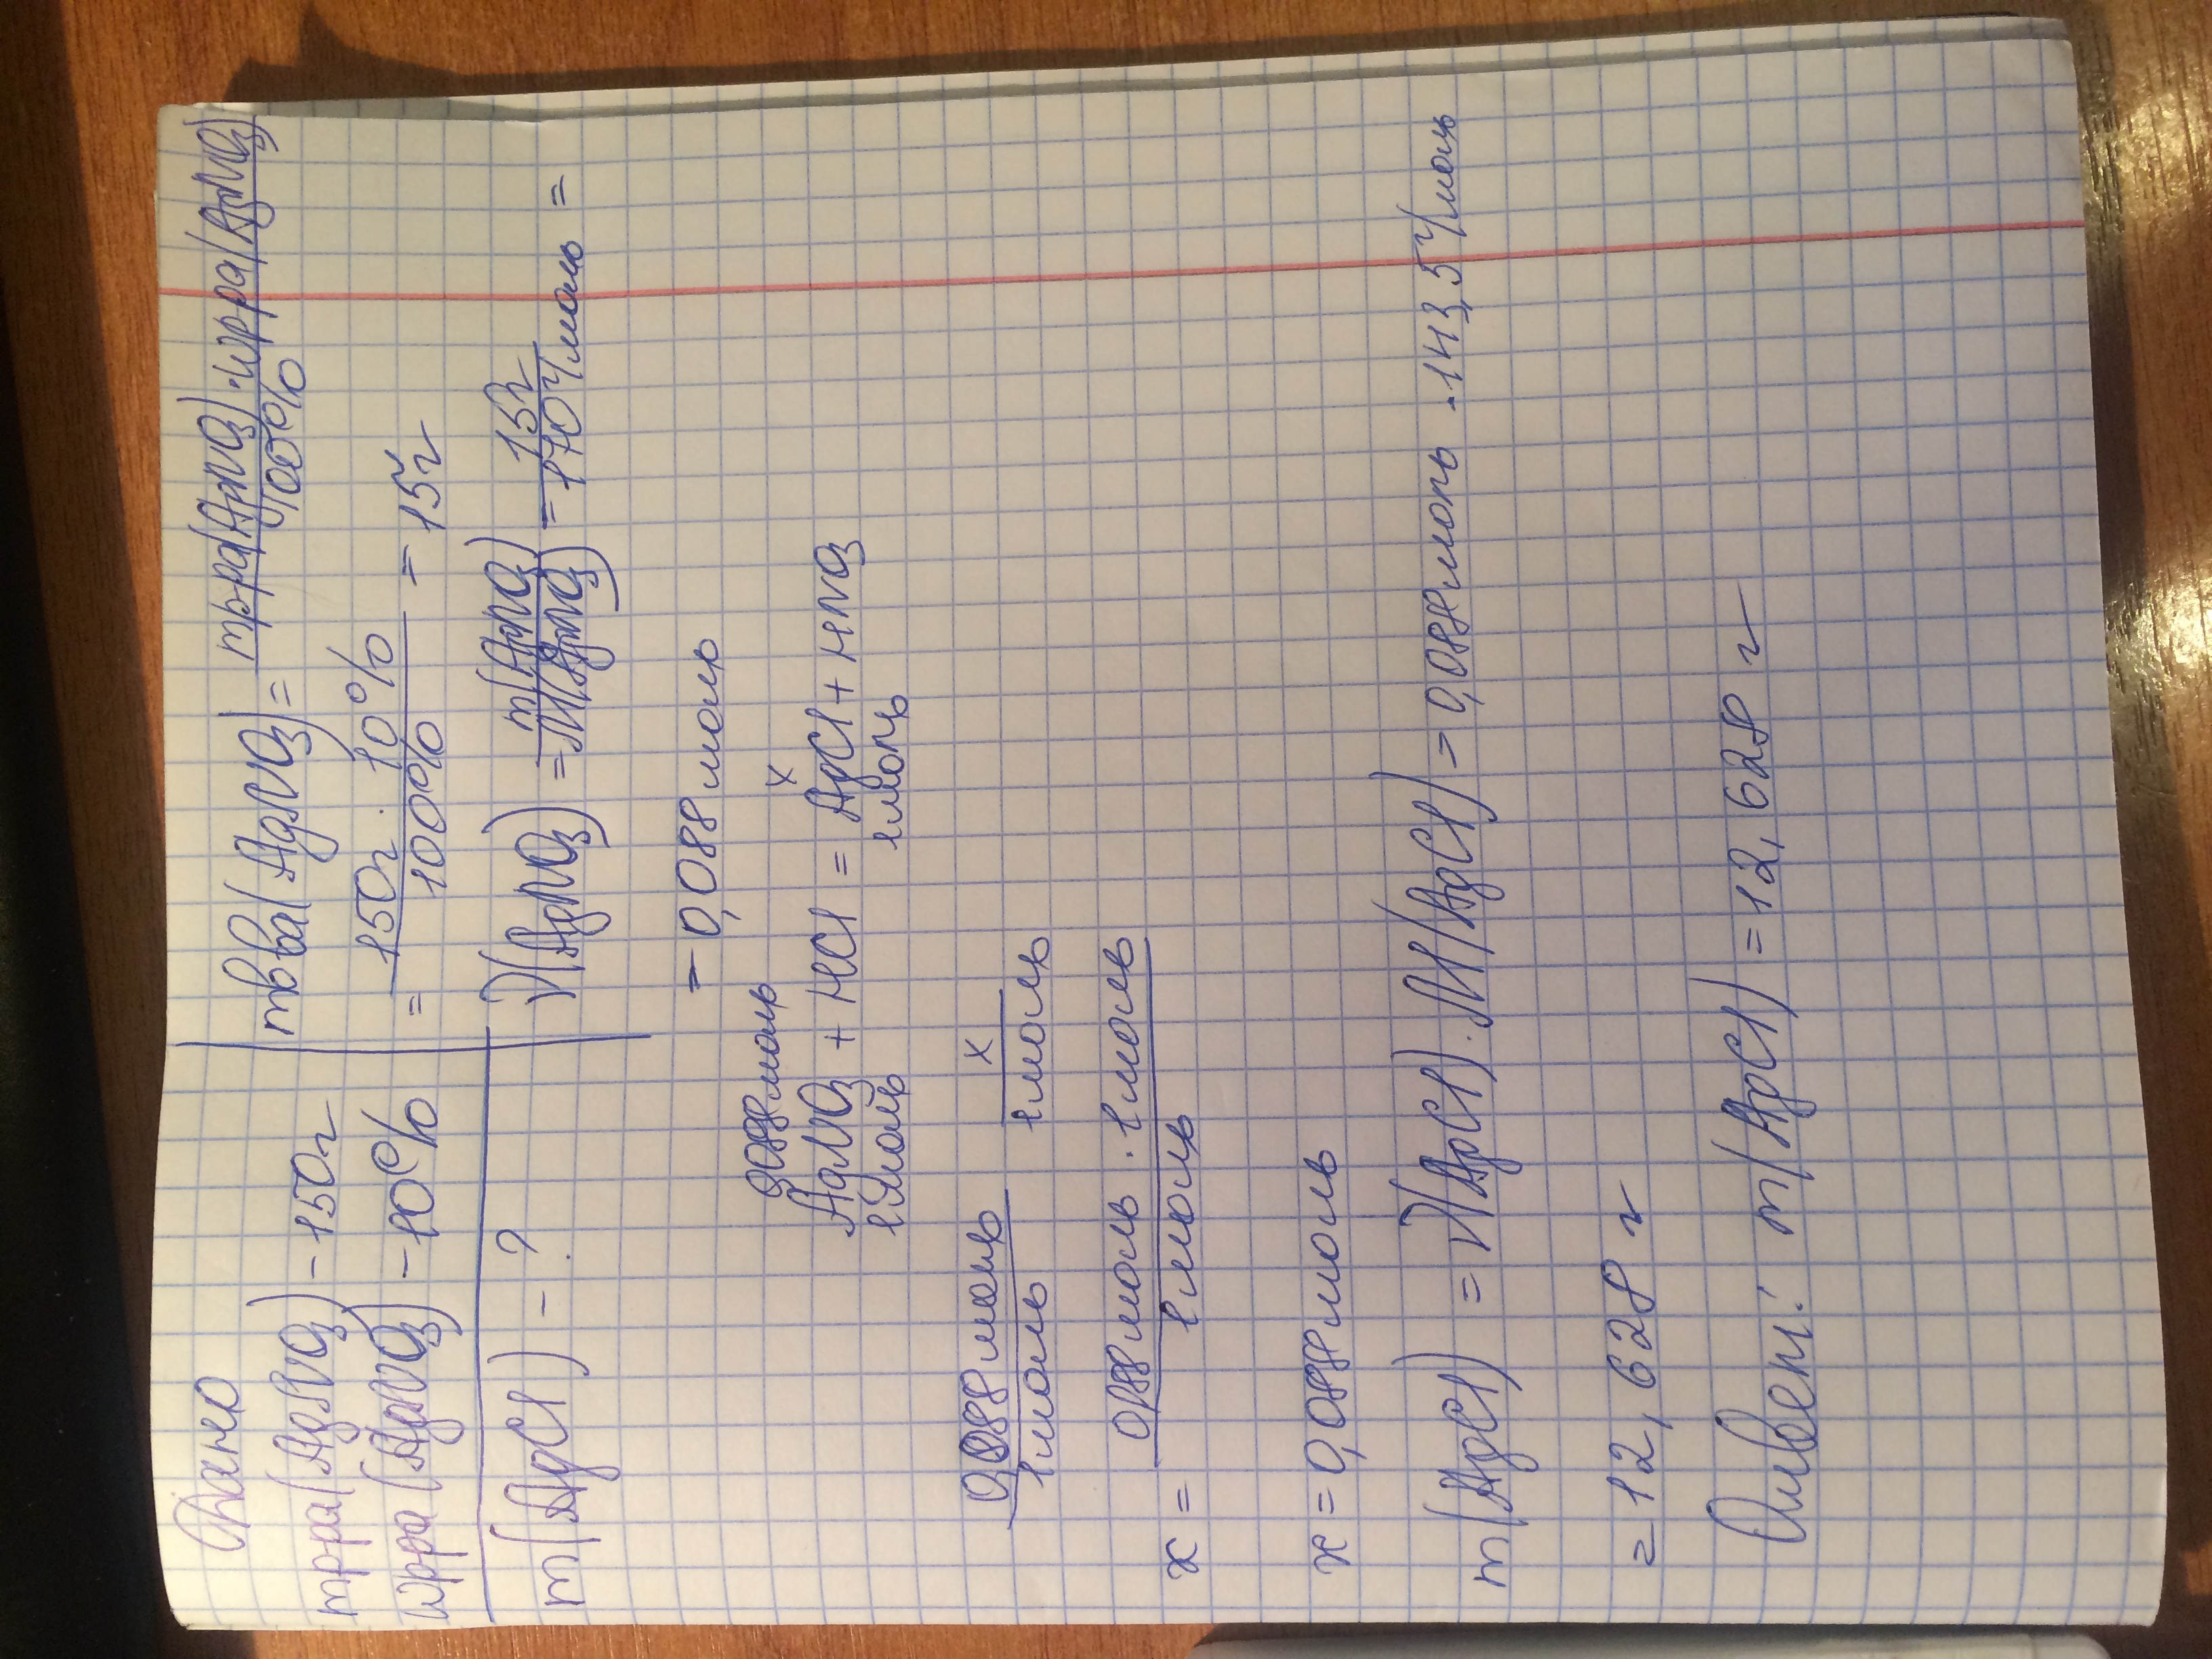 Дано
mр-ра(AgNO3) - 150г
wр-ра(AgNO3) - 10%
m(AgCl) - ?
mв-ва(AgNO3) = mр-ра(AgNO3)·wр-ра(AgNO3)/100%
= 150г · 10%/100% = 15г
ν(AgNO3) = m(AgNO3)/M(AgNO3) = 15г/170г/моль =
= 0,088 моль
0,088 моль x
AgNO3 + HCl = AgCl + HNO3
1 моль 1 моль
0,088 моль/1 моль x/1 моль
x = 0,088 моль · 1 моль/1 моль
x = 0,088 моль
m(AgCl) = ν(AgCl) · M(AgCl) = 0,088 моль · 143,5 г/моль
= 12,628 г
Ответ: m(AgCl) = 12,628 г